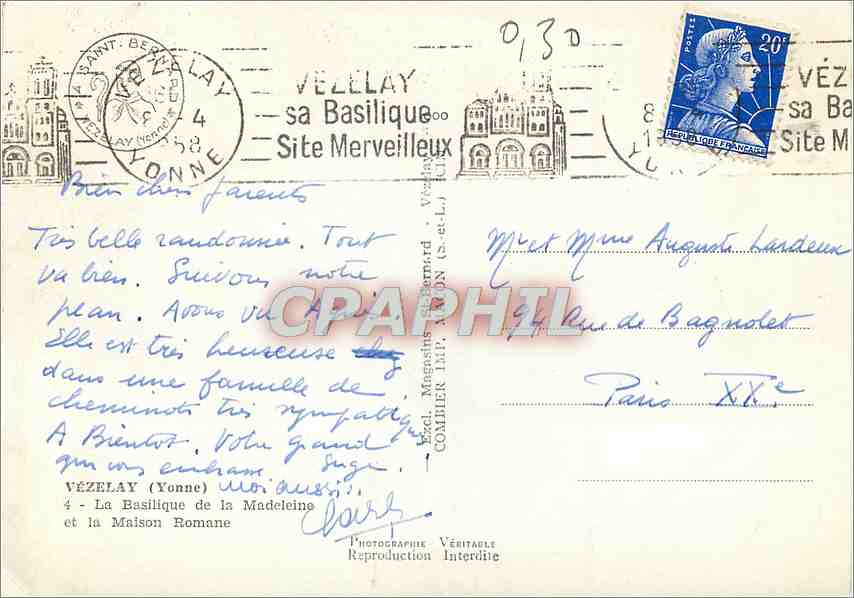 0,30
A SAINT. BERNARD
VEZELAY (Yonne)
VEZELAY
4
1958
YONNE
VÉZELAY
sa Basilique
Site Merveilleux
POSTES
20F
REPUBLIQUE FRANÇAISE
VÉZ
sa Ba
Site M
8
19
YO
Bien chers parents
Très belle randonnée. Tout
va bien. Suivons notre
plan. Avons vu Agnès.
Elle est très heureuse chez
dans une famille de
cheminots très sympathiques
A Bientôt. Votre grand
qui vous embrasse
Moi aussi.
VÉZELAY (Yonne)
4 - La Basilique de la Madeleine
et la Maison Romane
Excl. Magasins St-Bernard - Vézelay
COMBIER IMP. MACON (S.-et-L.)
Mr et Mme Auguste Lardeux
94 Rue de Bagnolet
Paris XXe
CPAPHIL
PHOTOGRAPHIE VÉRITABLE
Reproduction Interdite